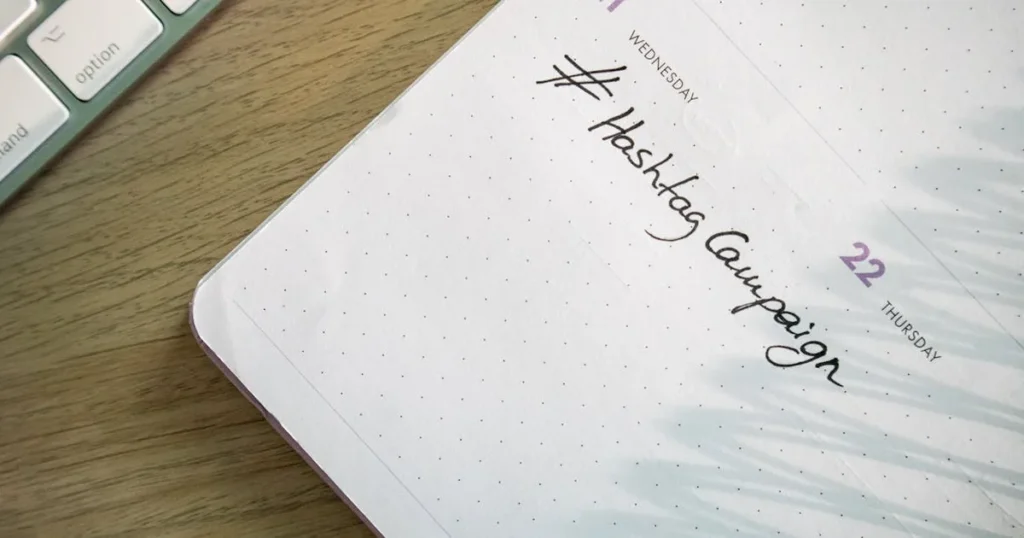 option
WEDNESDAY
# Hashtag Campaign
22
THURSDAY